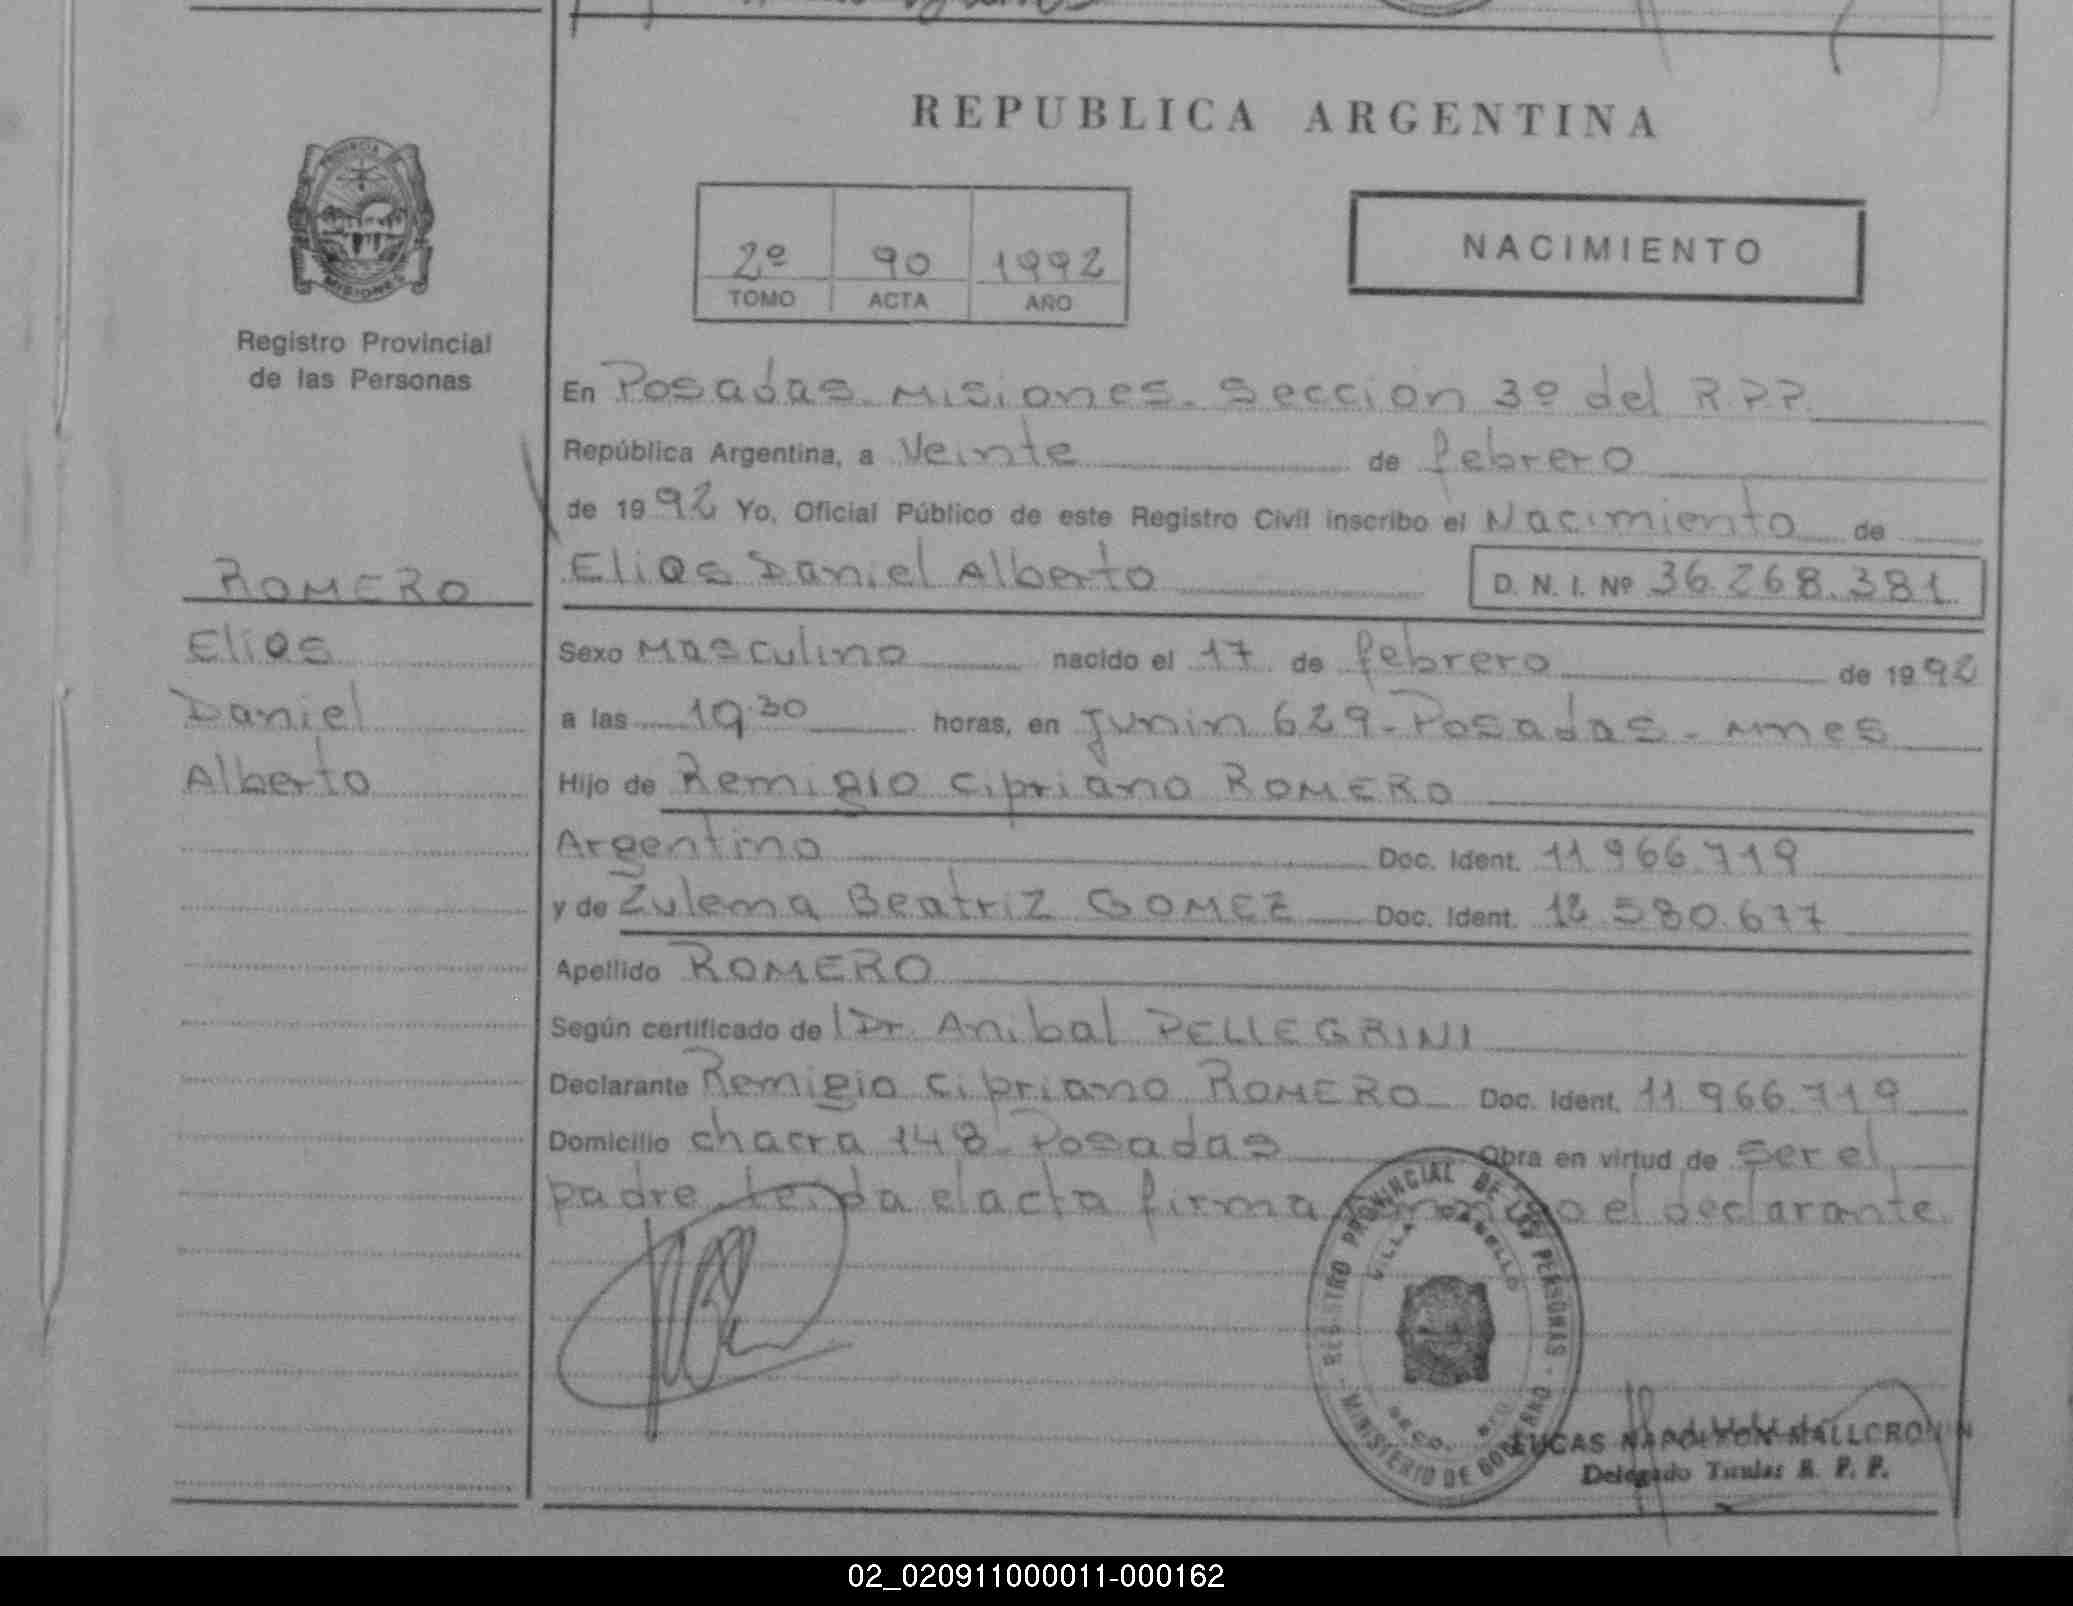 REPUBLICA ARGENTINA
PROVINCIA DE
MISIONES
Registro Provincial
de las Personas
2º 90 1992
TOMO ACTA AÑO
NACIMIENTO
En Posadas. Misiones. Seccion 3º del R.P.P.
República Argentina, a Veinte de febrero
de 1992 Yo, Oficial Público de este Registro Civil inscribo el Nacimiento de
Elias Daniel Alberto D. N. I. Nº 36.268.381.
ROMERO
Elias
Daniel
Alberto
Sexo Masculino nacido el 17 de febrero de 1992
a las 19.30 horas, en Junin 629 - Posadas - Mnes
Hijo de Remigio Cipriano ROMERO
Argentino Doc. Ident. 11.966.719
y de Zulema Beatriz GOMEZ Doc. Ident. 12.580.677
Apellido ROMERO
Según certificado de l Dr. Anibal PELLEGRINI
Declarante Remigio Cipriano ROMERO Doc. Ident. 11.966.719
Domicilio chacra 148 - Posadas Obra en virtud de ser el
padre leida el acta firma el declarante.
REGISTRO PROVINCIAL DE LAS PERSONAS - MINISTERIO DE GOBIERNO -
VILLA CABELLO
LUCAS NAPOLEON MALLCRONIN
Delegado Titular R. P. P.
02_020911000011-000162